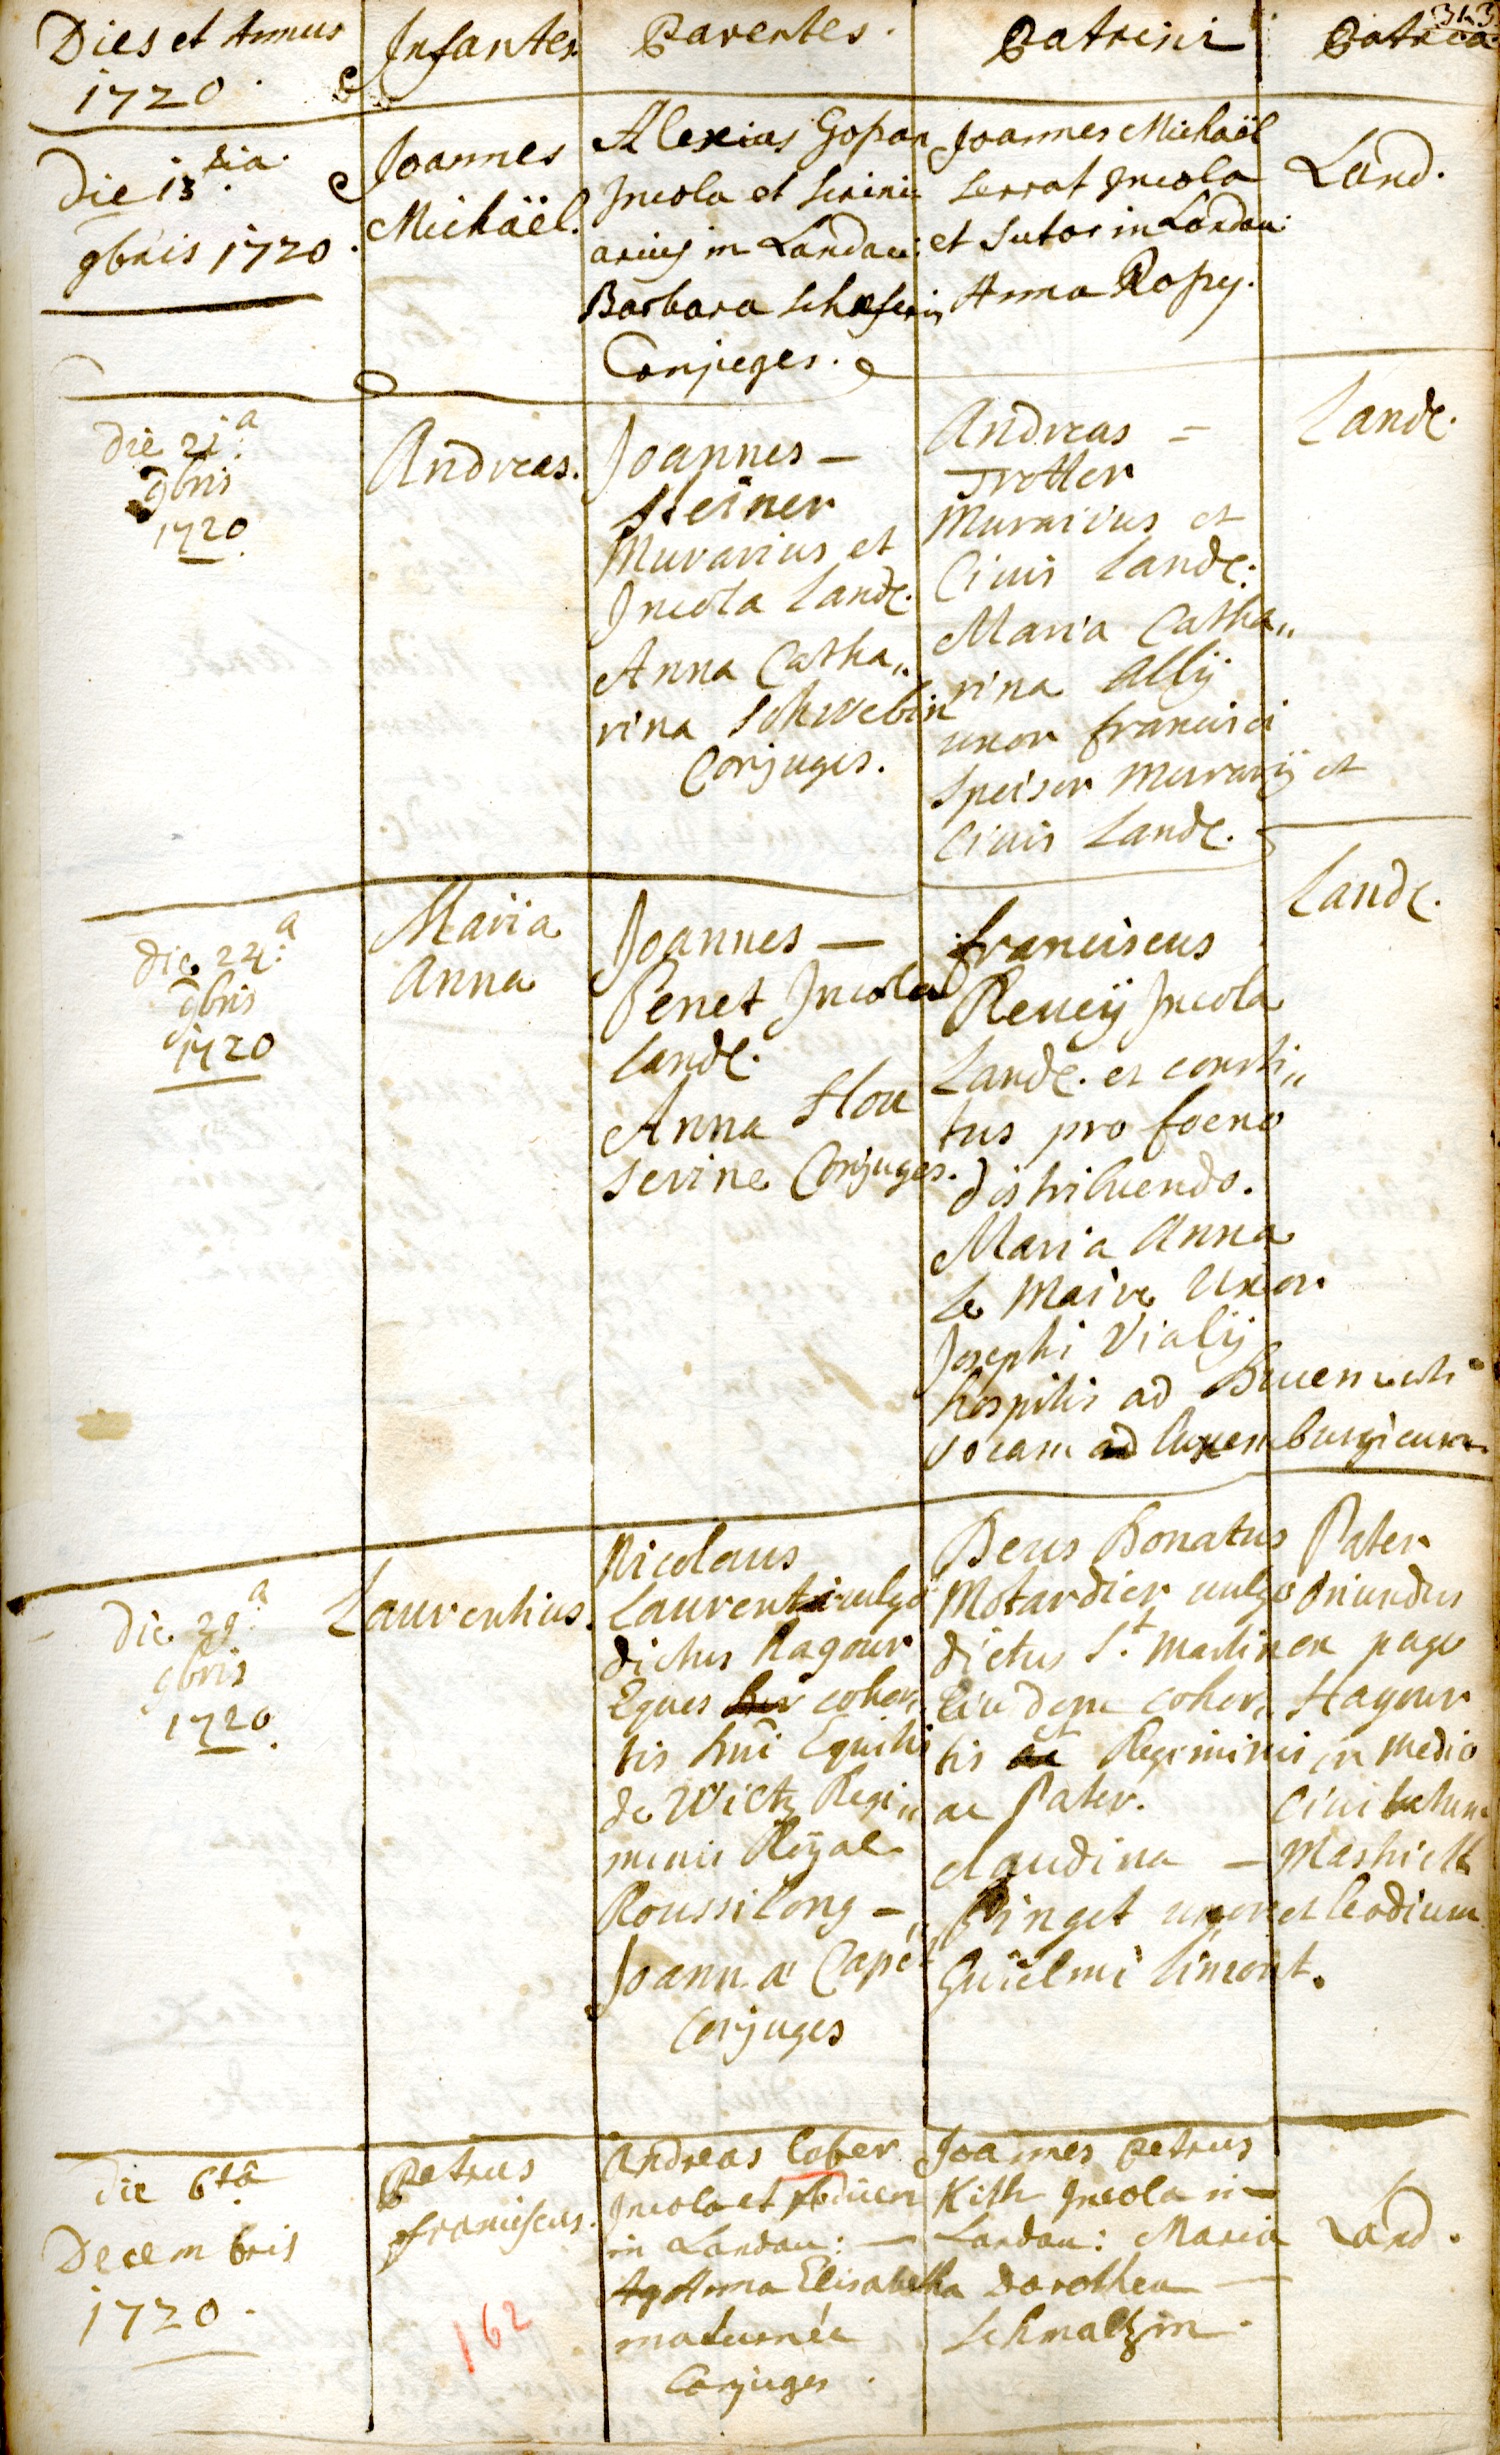 343
Dies et Annus
1720.
Infantes
Parentes.
Patrini
Patria.
Die 13 tia.
9bris 1720.
Joannes
Michäel.
Alexius Gopan
Incola et scrini
arius in Landau:
Barbara schæferin
Conjeges.
Joannes Michaël
serrat Incola
et sutor in Landau:
Anna Ropy.
Land.
die 21.a
9bris
1720
Andreas.
Joannes —
Steiner
Murarius et
Incola Land.
Anna Catha„
rina Schweblin
Conjuges.
Andreas =
Trotter
Murarius et
Civis Land:
Maria Catha„
rina Ally
uxor francisci
Speiser murarij et
Civis Land.
Land.
die 24.a
9bris
1720
Maria
Anna
Joannes —
Penet Incola
Land.
Anna Hou
serine Conjuges.
franciscus
Reucÿ Incola
Land. et consti„
tus pro foeno
distribuendo.
Maria Anna
le Maire Uxor
Josephi Vialij
hospitis ad
vocam ad luxemburgicum
Land.
die 29.a
9bris
1720.
Laurentius.
Nicolaus
Laurent vulgo
dictus Ragour
Eques cohor„
tis Equitis
de Wictz Regi„
minis Röyal
Roussilong —
Joanna Capé
Conjuges
Deus Donatus
Motardier vulgo
dictus S.t Martin
Eiudem cohor„
tis et Regiminis
ac Pater.
claudina —
Pinget uxor
Guielmi limont.
Pater
oriundus
ex pago
Hagour
in medio
civitatum
Mastricht
et leodium
die 6tâ
Decembris
1720.
Petrus
franciscus.
162
Andreas Cober
Incola et
in Landau: —
Anna Elisabetha
maturnée
Conjuges.
Joannes Petrus
Kith Incola in
Landau: Maria
Dorothea —
schmaltzin.
Land.